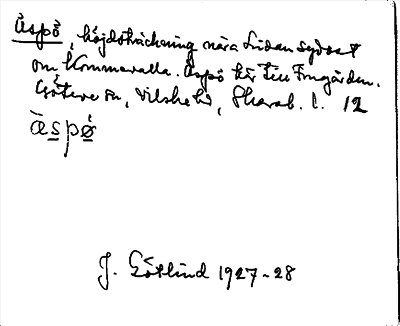 Äspö, höjdsträckning nära Lidan sydost
om Kommaralla. Äspö hör till Frugården.
Götene sn, Vilske hd, Skarab. l. 12
àspǿ
J. Götlind 1927-28